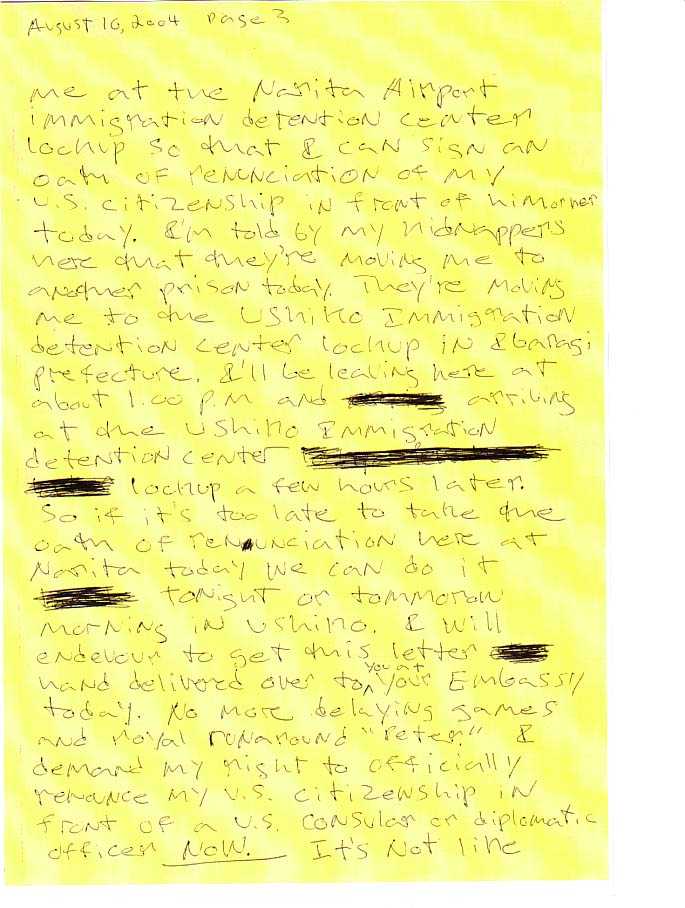 August 10, 2004 Page 3
me at the Narita Airport
immigration detention center
lockup so that I can sign an
oath of renunciation of my
U.S. citizenship in front of him or her
today. I'm told by my kidnappers
here that they're moving me to
another prison today. They're moving
me to the Ushiko Immigration
detention center lockup in Ibaragi
prefecture. I'll be leaving here at
about 1:00 P.M and arriving
at the Ushiko Immigration
detention center
lockup a few hours later.
So if it's too late to take the
oath of renunciation here at
Narita today we can do it
tonight or tommorow
morning in Ushiko. I will
endevour to get this letter
hand delivered over to you at your Embassy
today. No more delaying games
and royal runaround "Peter." I
demand my right to officially
renounce my U.S. citizenship in
front of a U.S. consular or diplomatic
officer NOW. It's Not like